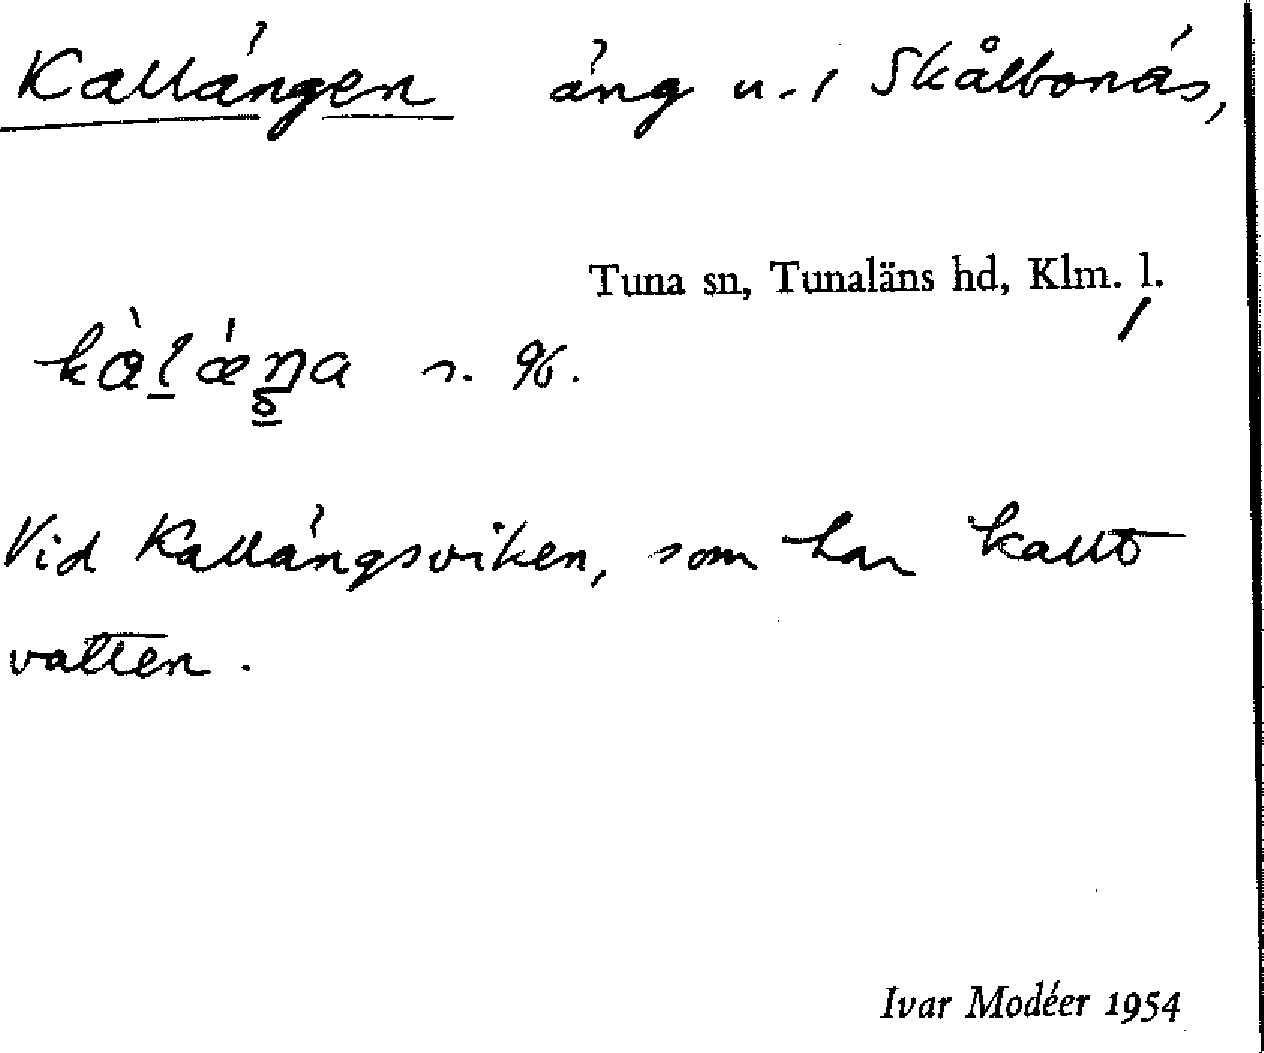 Kallängen äng u. / Skålbonäs,
Tuna sn, Tunaläns hd, Klm. l.
kàlǽŋa s. %.
Vid Kallängsviken, som har kallt
vatten.
Ivar Modéer 1954